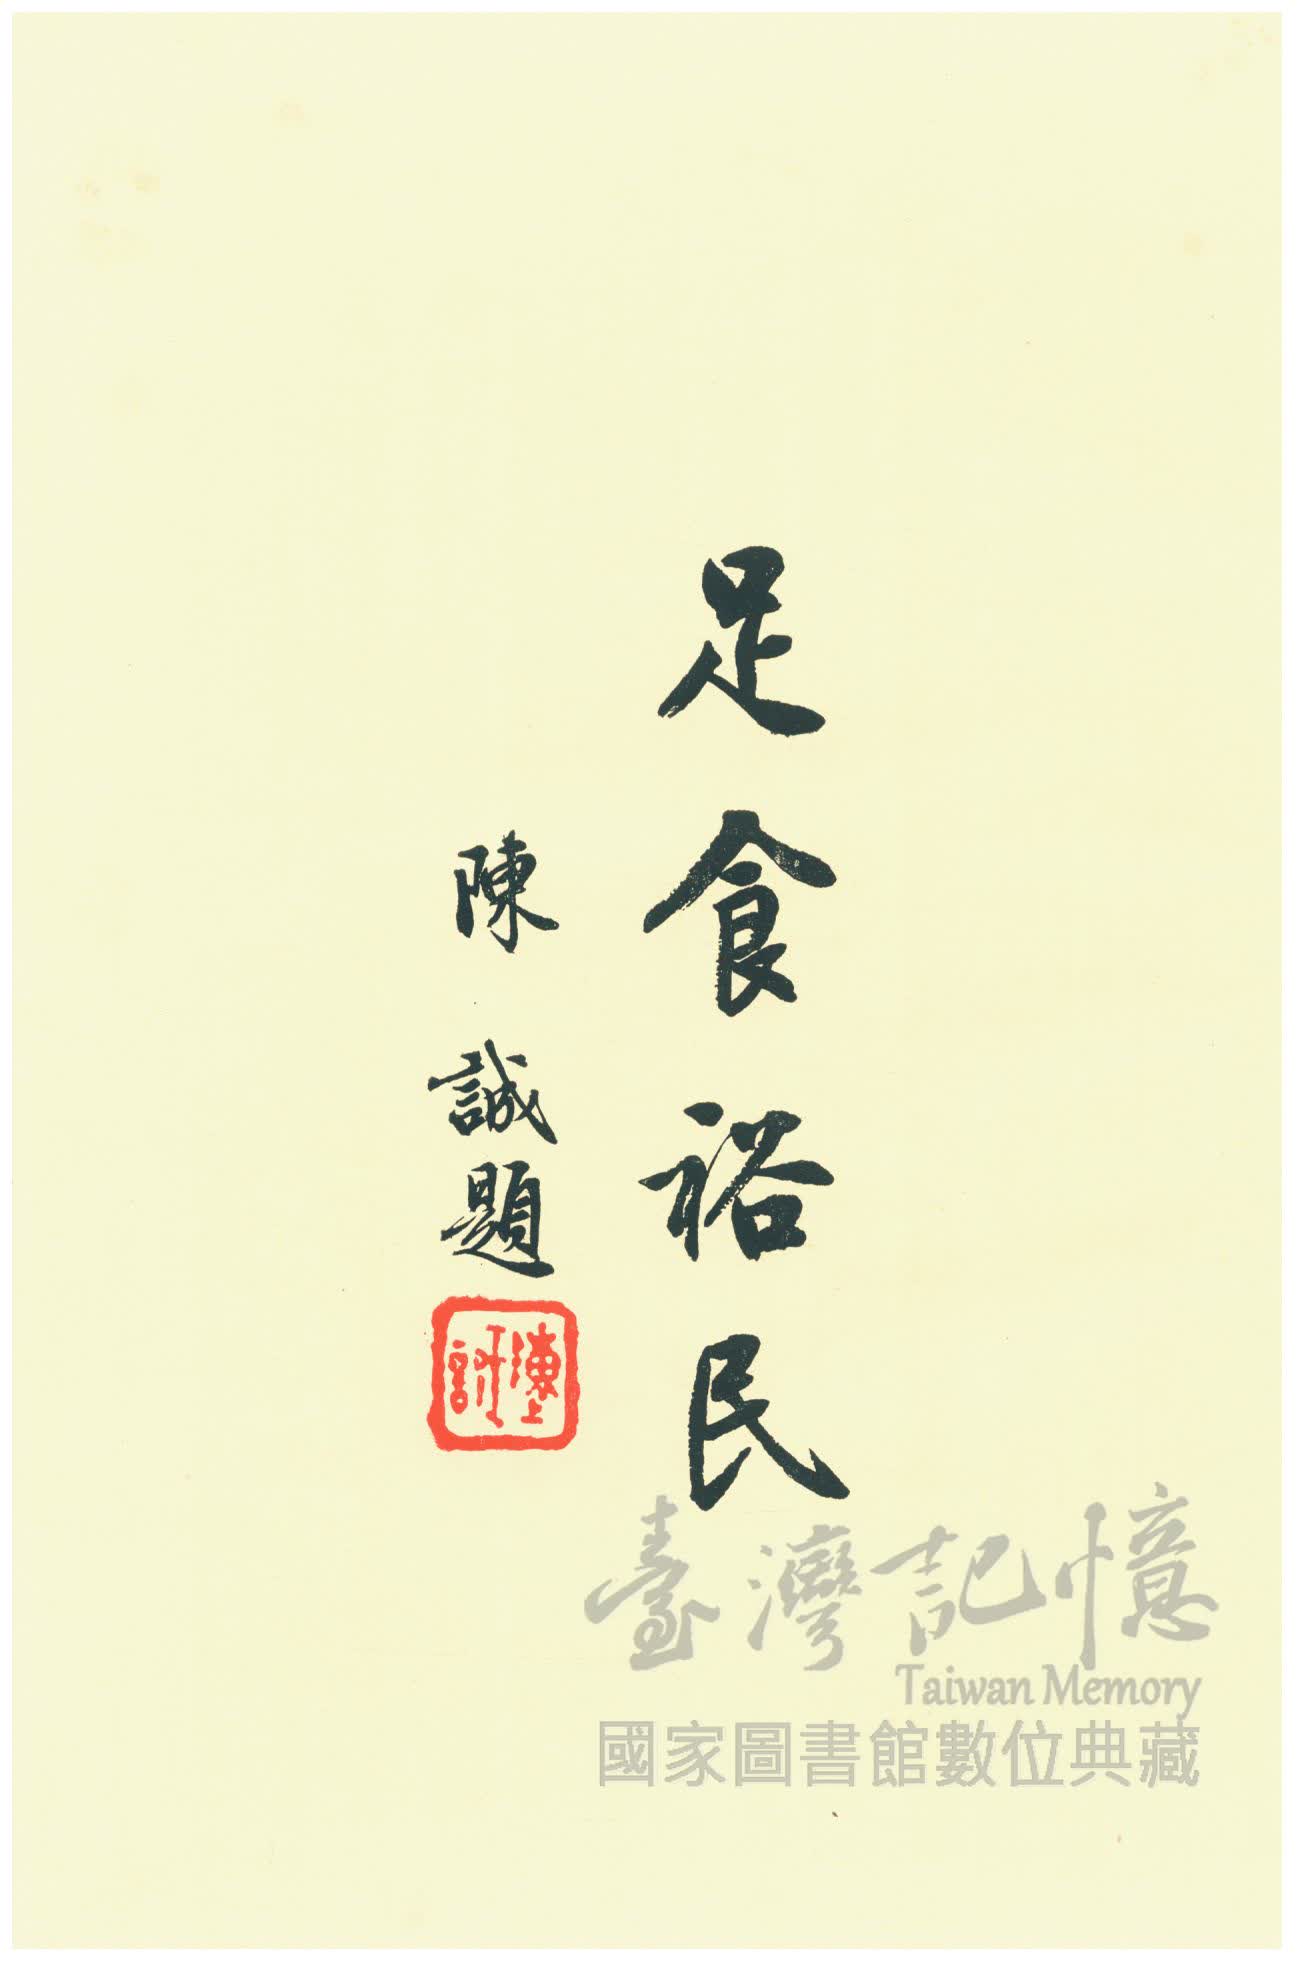 足食裕民
陳誠題
陳誠
臺灣記憶
Taiwan Memory
國家圖書館數位典藏